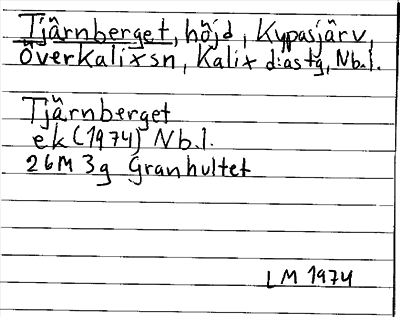 Tjärnberget, höjd, Kypasjärv,
Överkalixsn, Kalix d:astg, Nb.l.
Tjärnberget
ek (1974) Nb.l.
26M 3g Granhultet
LM 1974